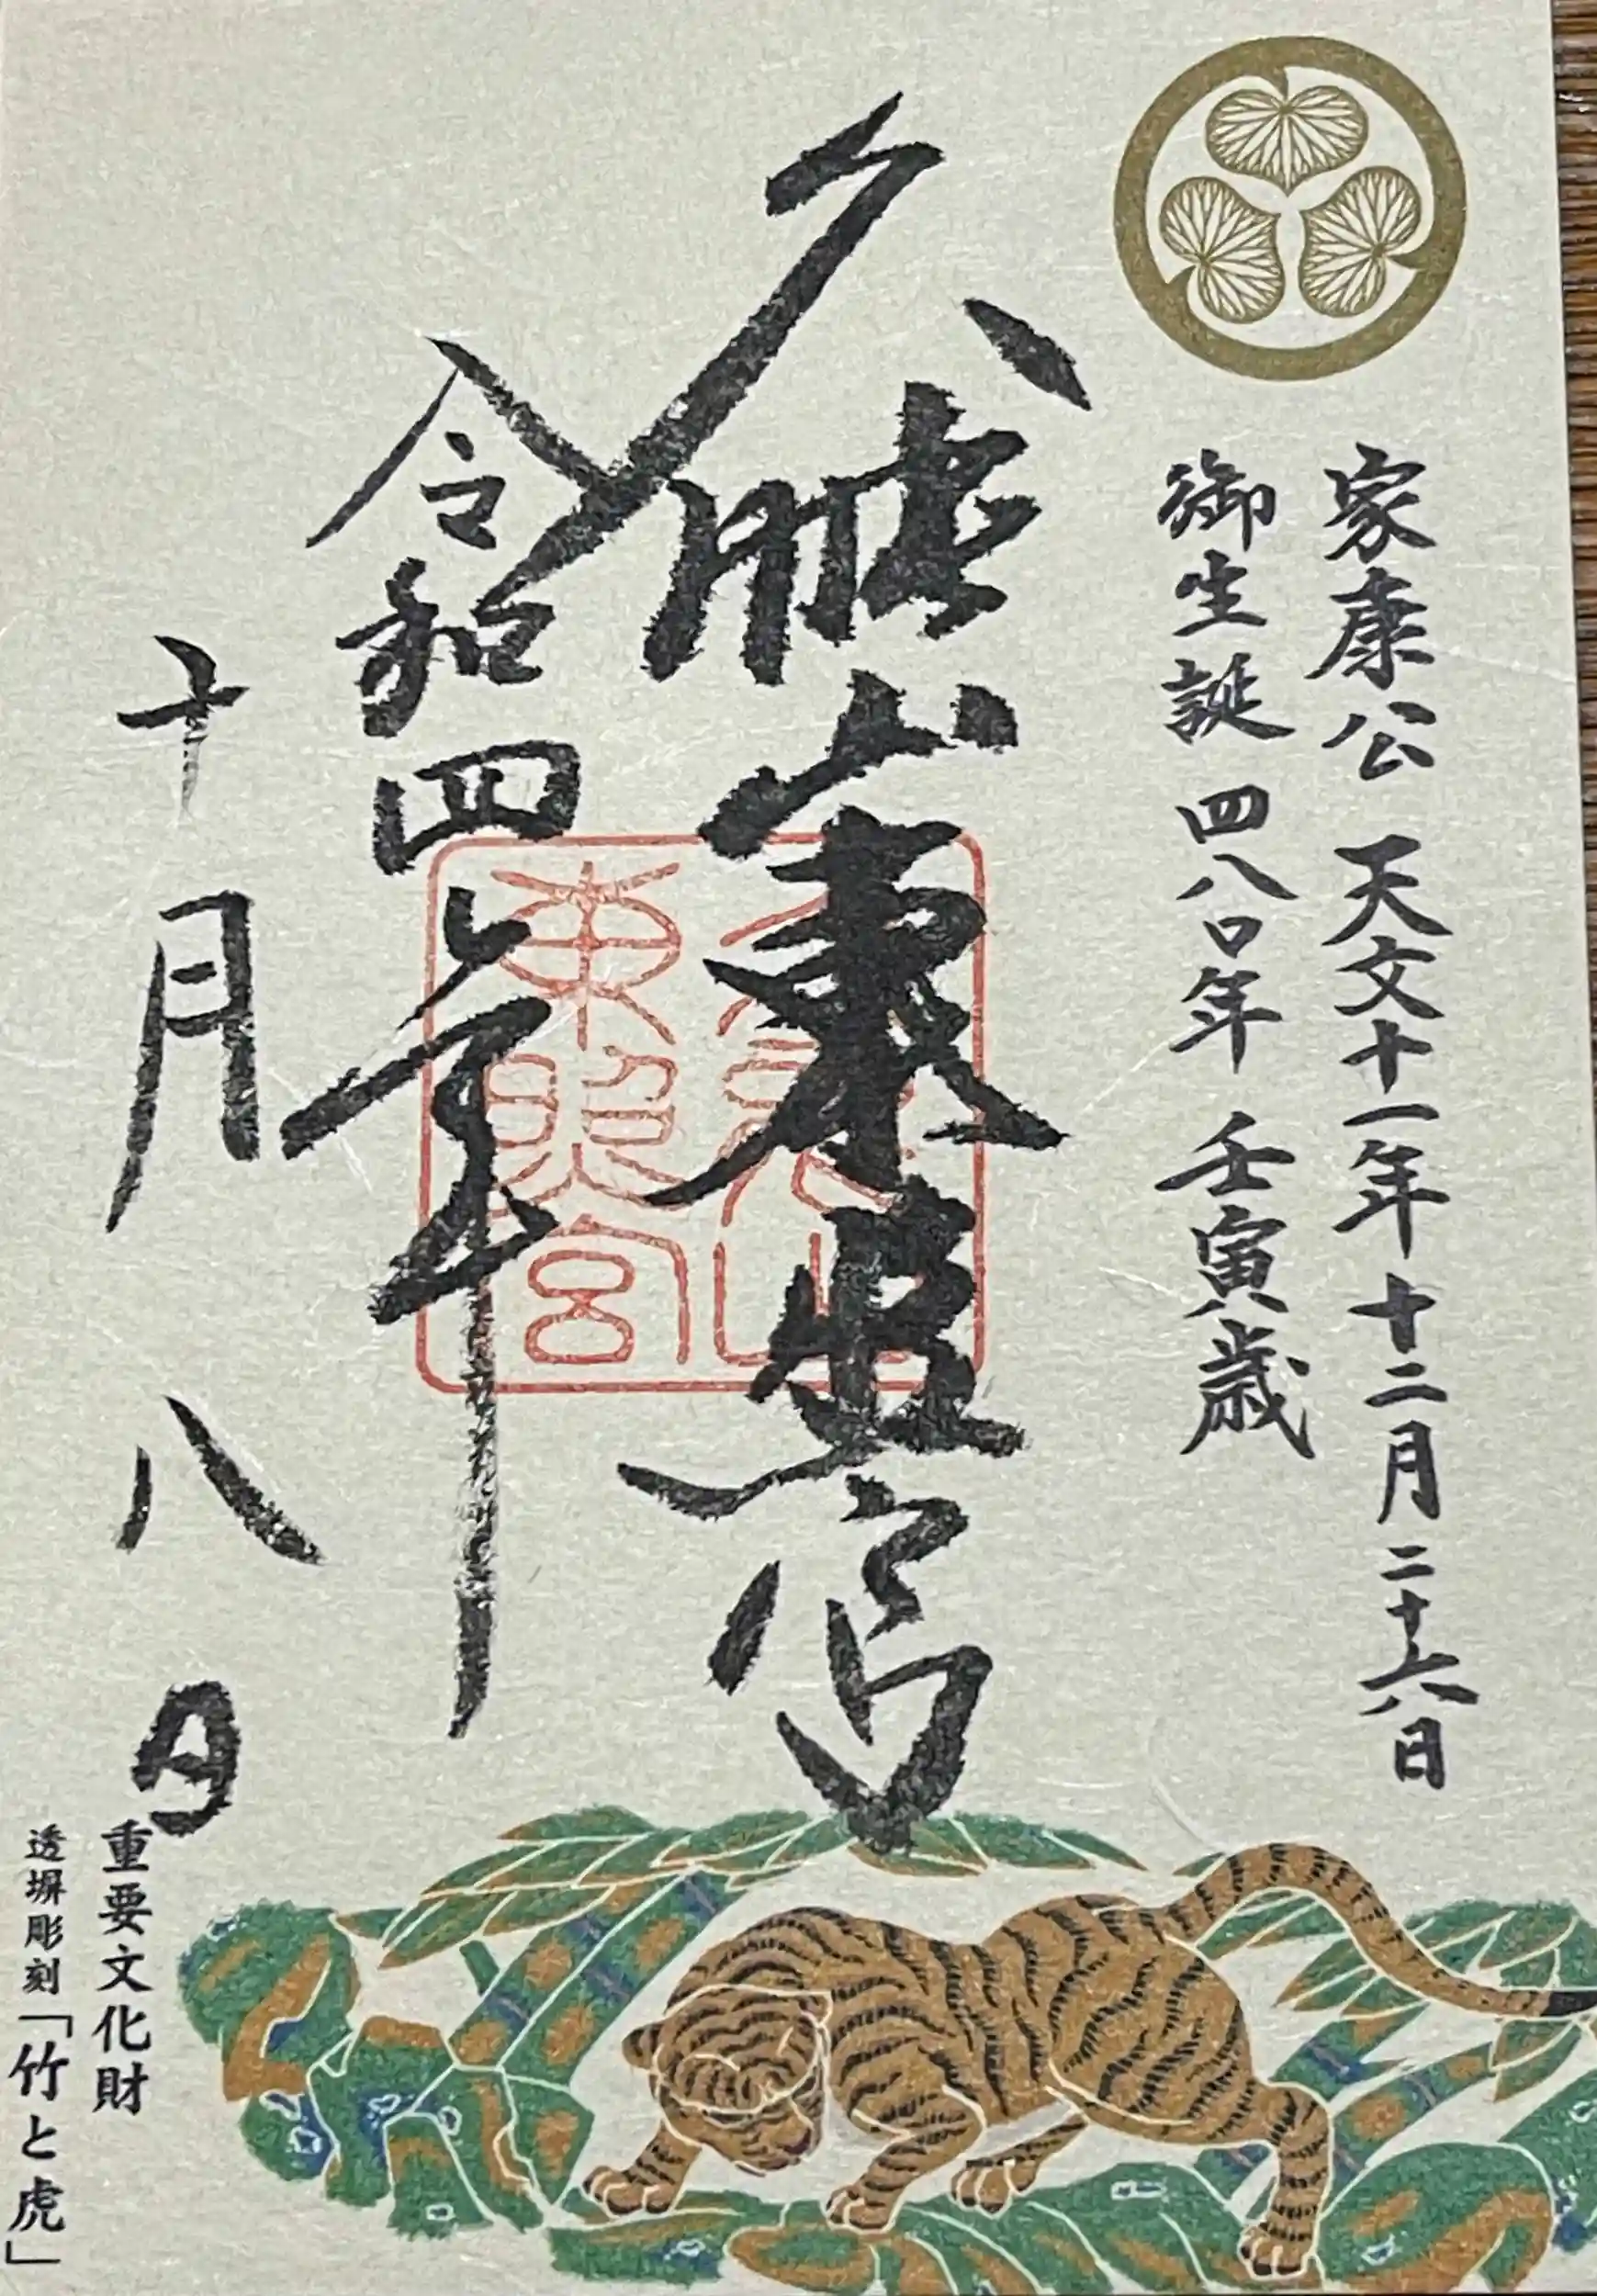 家康公 天文十一年 十二月 二十六日
御生誕 四八〇年 壬寅歳
久能山東照宮
令和四年
十月八日
久能山
東照宮
重要文化財
透塀彫刻「竹と虎」